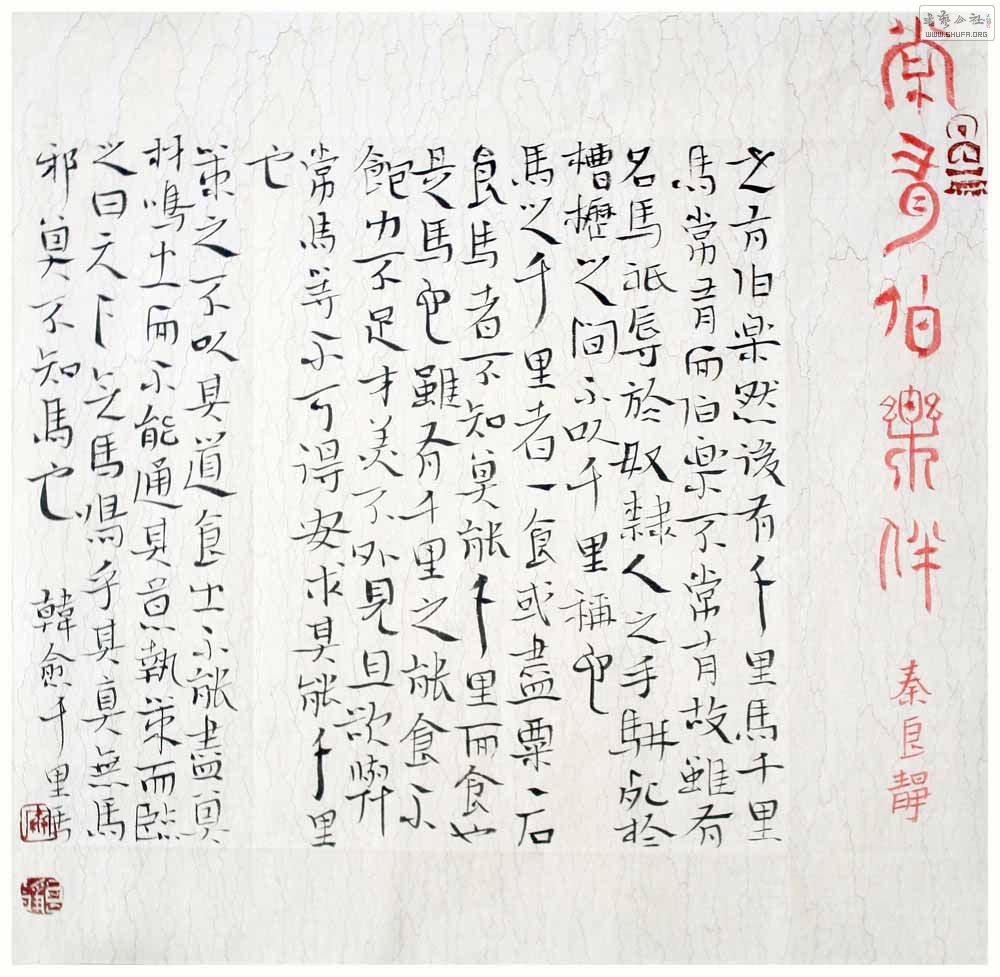 書藝公社
WWW.SHUFA.ORG
常有伯樂伴
秦良靜
世有伯楽然後有千里馬千里
馬常有而伯楽不常有故雖有
名馬祇辱於奴隸人之手駢死於
槽櫪之間不以千里稱也
馬之千里者一食或盡粟一石
食馬者不知其能千里而食也
是馬也雖有千里之能食不
飽力不足才美不外見且欲與
常馬等不可得安求其能千里
也
策之不以其道食之不能盡其
材鳴之而不能通其意執策而臨
之曰天下无馬嗚乎其真無馬
邪其不知馬也 韓愈千里馬